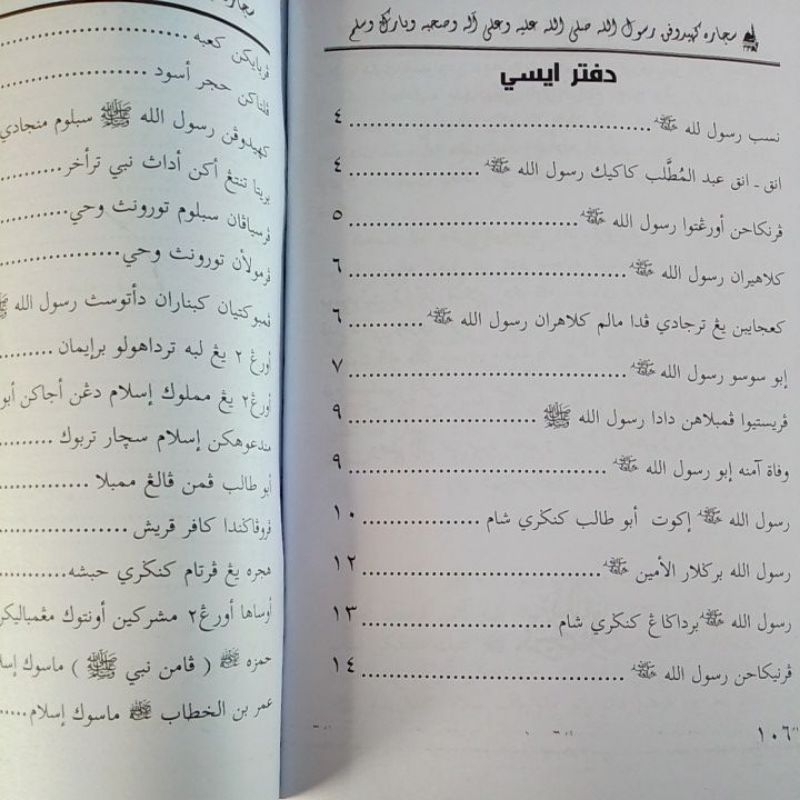 سجاره كهيدوڤن رسول الله صلى الله عليه وعلى آله وصحبه وبارك وسلم
دفتر ايسي
نسب رسول لله ﷺ .......... ٤
انق - انق عبد المُطَّلب كاكيك رسول الله ﷺ .......... ٤
ڤرنكاحن أورڠتوا رسول الله ﷺ .......... ٥
كلاهيران رسول الله ﷺ .......... ٦
كعجايبن يڠ ترجادي ڤدا مالم كلاهران رسول الله ﷺ .......... ٦
إبو سوسو رسول الله ﷺ .......... ٧
ڤريستيوا ڤمبلاهن دادا رسول الله ﷺ .......... ٩
وفاة آمنه إبو رسول الله ﷺ .......... ٩
رسول الله ﷺ إكوت أبو طالب كنڬري شام .......... ١٠
رسول الله برڬلار الأمين ﷺ .......... ١٢
رسول الله ﷺ برداڬاڠ كنڬري شام .......... ١٣
ڤرنيكاحن رسول الله ﷺ .......... ١٤
١٠٦
ڤربايكن كعبه ..........
ڤلتاكن حجر أسود ..........
كهيدوڤن رسول الله ﷺ سبلوم منجادي
بريتا تنتڠ أكن أداڽ نبي ترأخر ..........
ڤرسياڤان سبلوم تورونڽ وحي ..........
ڤرمولأن تورونڽ وحي ..........
ڤمبوكتيان كبناران دأتوسڽ رسول الله
أورڠ ٢ يڠ لبه ترداهولو برإيمان ..........
أورڠ٢ يڠ مملوك إسلام دڠن أجاكن أبو
مندعوهكن إسلام سچار تربوك ..........
أبو طالب ڤمن ڤالڠ ممبلا ..........
ڤروڤاڬندا كافر قريش ..........
هجره يڠ ڤرتام كنڬري حبشه ..........
أوساها أورڠ٢ مشركين أونتوك مڠمباليكن
حمزه ﷺ ( ڤامن نبي ﷺ ) ماسوك إسلا
عمر بن الخطاب ﷺ ماسوك إسلام ..........